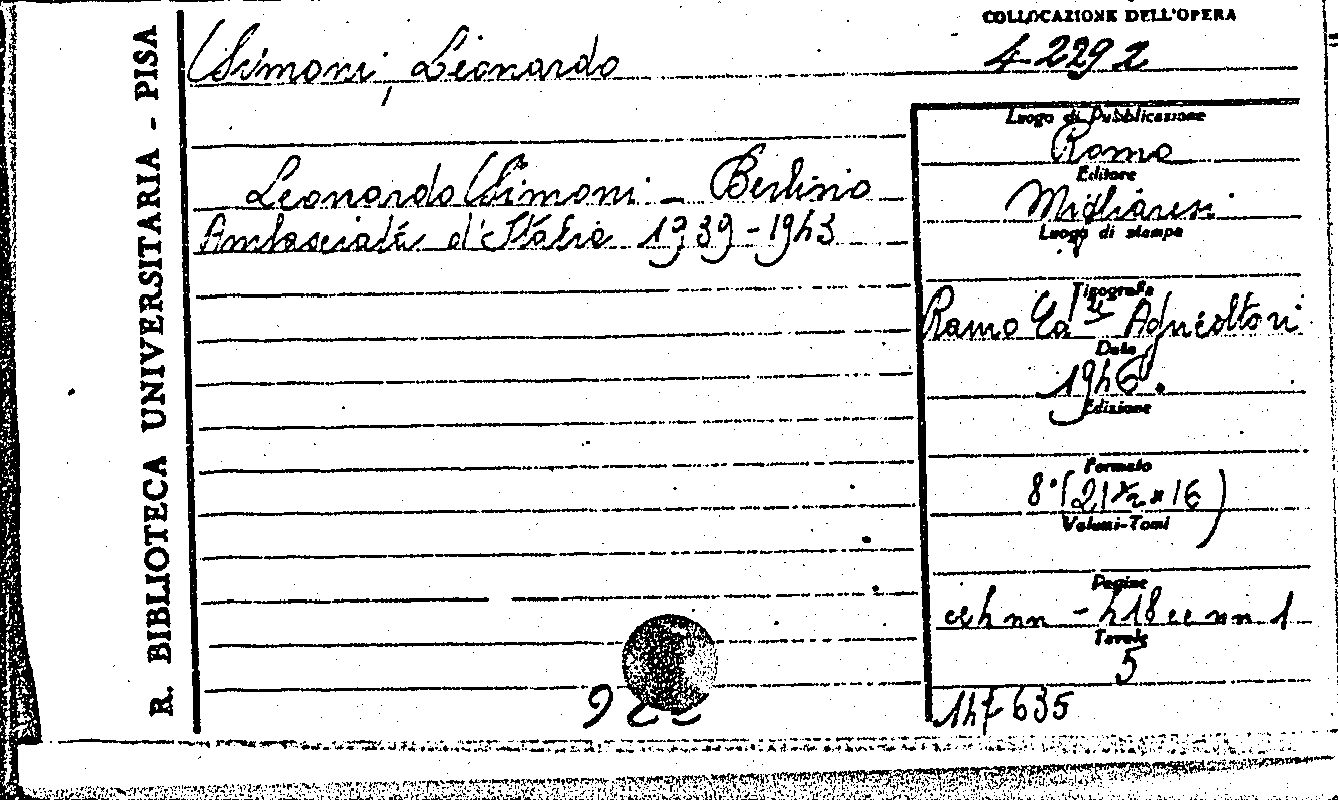 R. BIBLIOTECA UNIVERSITARIA - PISA
COLLOCAZIONE DELL'OPERA
4-229 2
Simoni, Leonardo
Leonardo Simoni - Berlino
Ambasciata d'Italia 1939-1943
Luogo di Pubblicazione
Roma
Editore
Migliaresi
Luogo di stampa
Tipografia
Ramo Agricoltori
Data
1946.
Edizione
Formato
8° (21 ½ x 16)
Volumi-Tomi
Pagine
nn - 418 nn 1
Tavole
5
147635